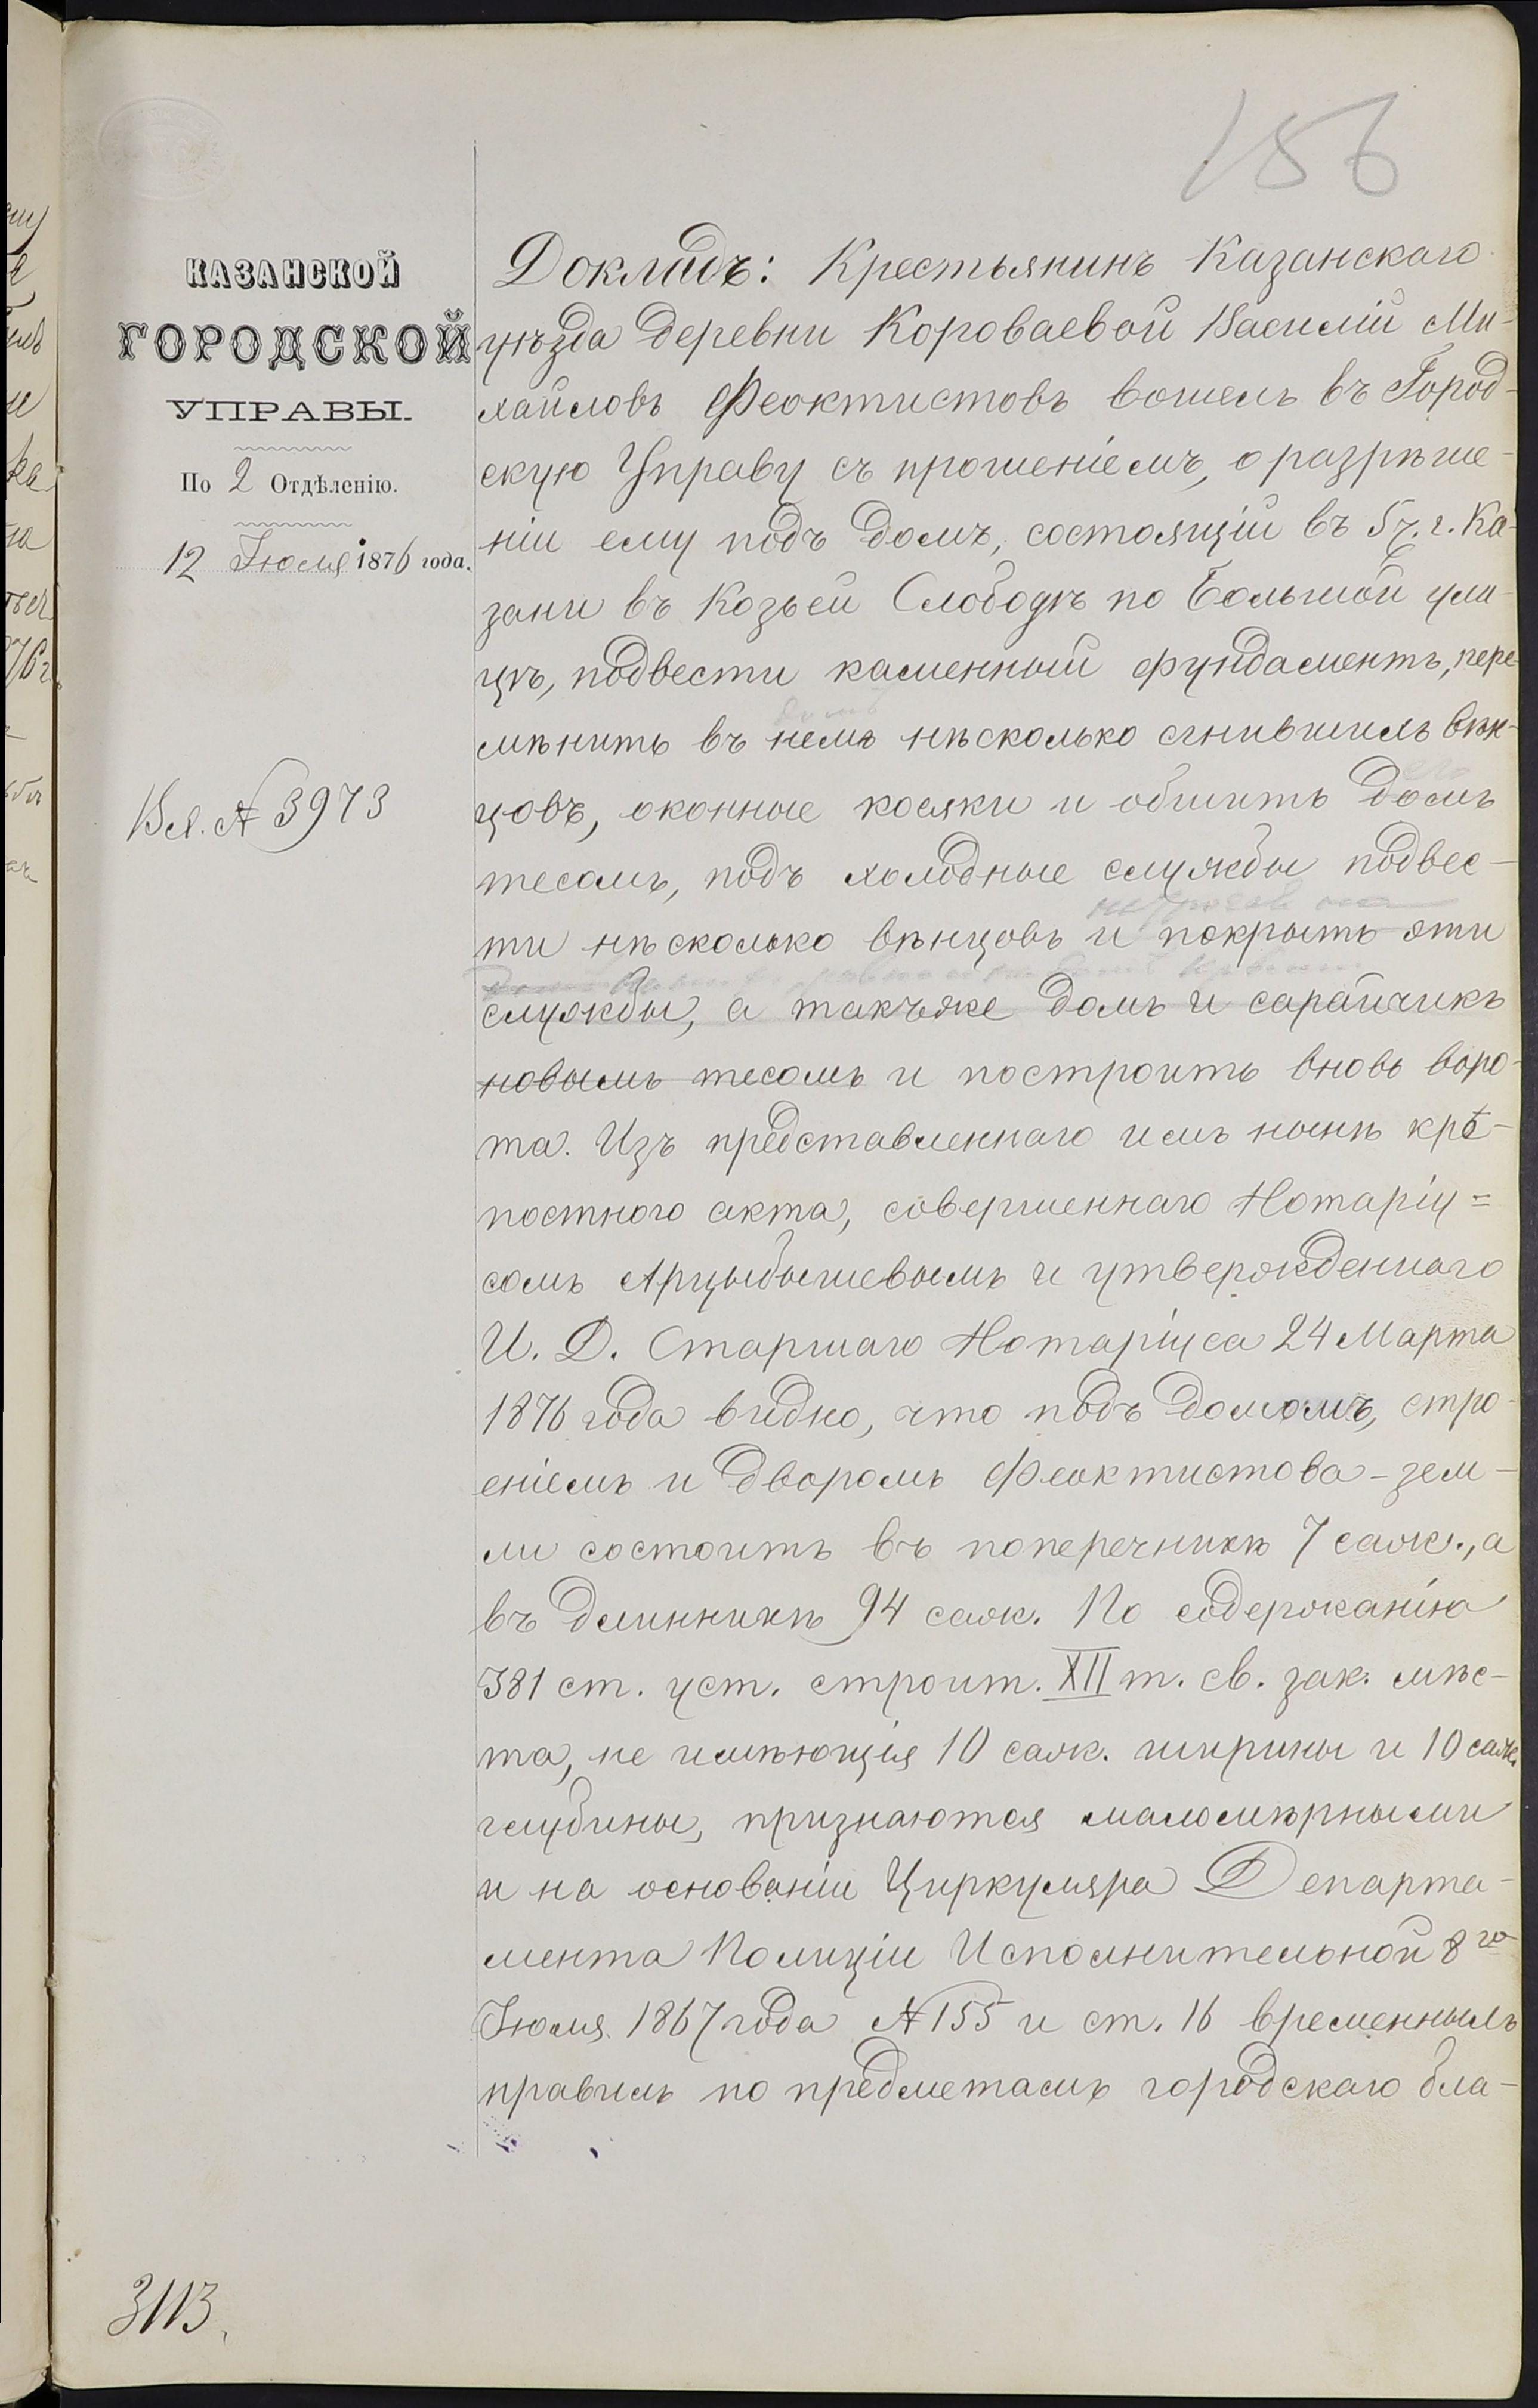 156
КАЗАНСКОЙ
ГОРОДСКОЙ
УПРАВЫ.
По 2 Отдѣленію.
12 Іюля 1876 года.
Вх. № 3973
Докладъ: Крестьянинъ Казанскаго
уѣзда деревни Короваевой Василій Ми-
хайловъ Феоктистовъ вошелъ въ Город-
скую Управу съ прошеніемъ, о разрѣше-
ніи ему подъ домъ, состоящій въ 5 ч. г. Ка-
зани въ Козьей Слободѣ по Большой ули-
цѣ, подвести каменный фундаментъ, пере-
мѣнить въ немъ нѣсколько сгнившихъ вѣн-
цовъ, оконные косяки и обшить домъ
тесомъ, подъ холодные службы подвес-
ти нѣсколько вѣнцовъ и покрыть эти
службы, а такъже домъ и сарайчикъ
новымъ тесомъ и построить вновь воро-
та. Изъ представленнаго имъ нынѣ крѣ-
постного акта, совершеннаго Нотаріу=
сомъ Арцыбышевымъ и утвержденнаго
И. Д. Старшаго Нотаріуса 24 Марта
1876 года видно, что подъ домомъ, стро-
еніемъ и дворомъ Феоктистова - зем-
ли состоитъ въ поперечникѣ 7 саж., а
въ длинникѣ 94 саж. По содержанію
381 ст. уст. строит. XII т. св. зак. мѣс-
та, не имѣющія 10 саж. ширины и 10 саж.
глубины, признаются маломѣрными
и на основаніи Циркуляра Департа-
мента Полиціи Исполнительной 8го
Іюля 1867 года № 155 и ст. 16 временныхъ
правилъ по предметамъ городскаго бла-
3113.